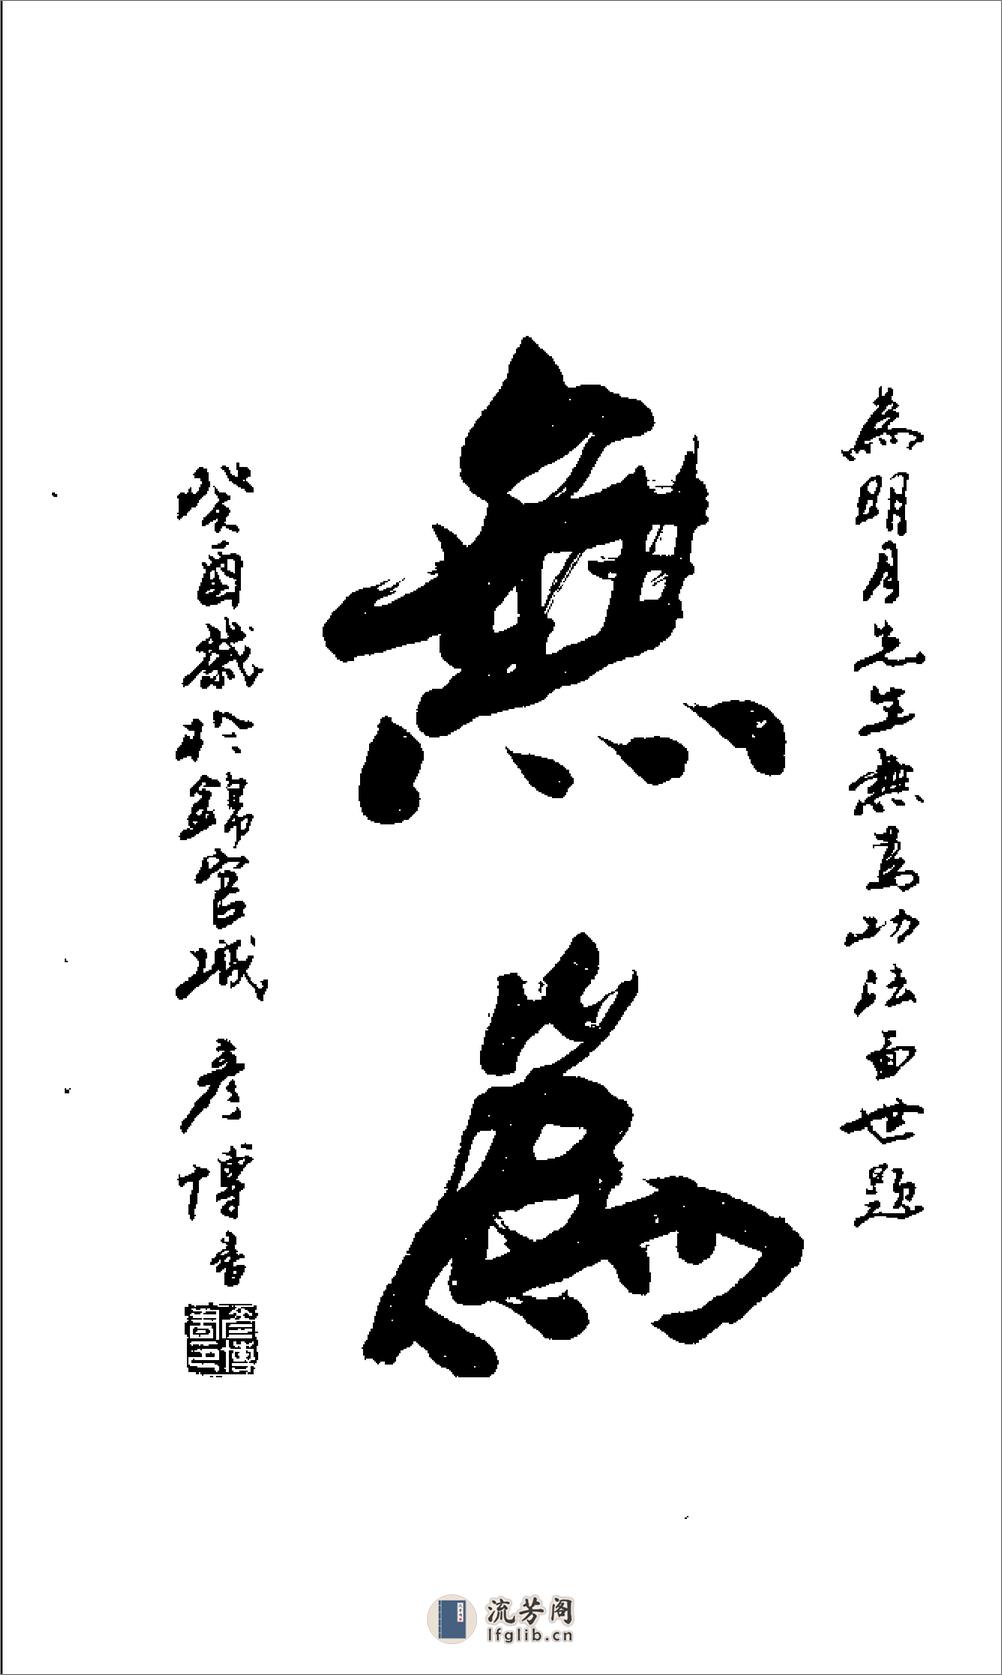 為明月先生無為功法面世題
無為
癸酉歲於錦官城 彥博書
彥博書印
流芳阁
lfglib.cn